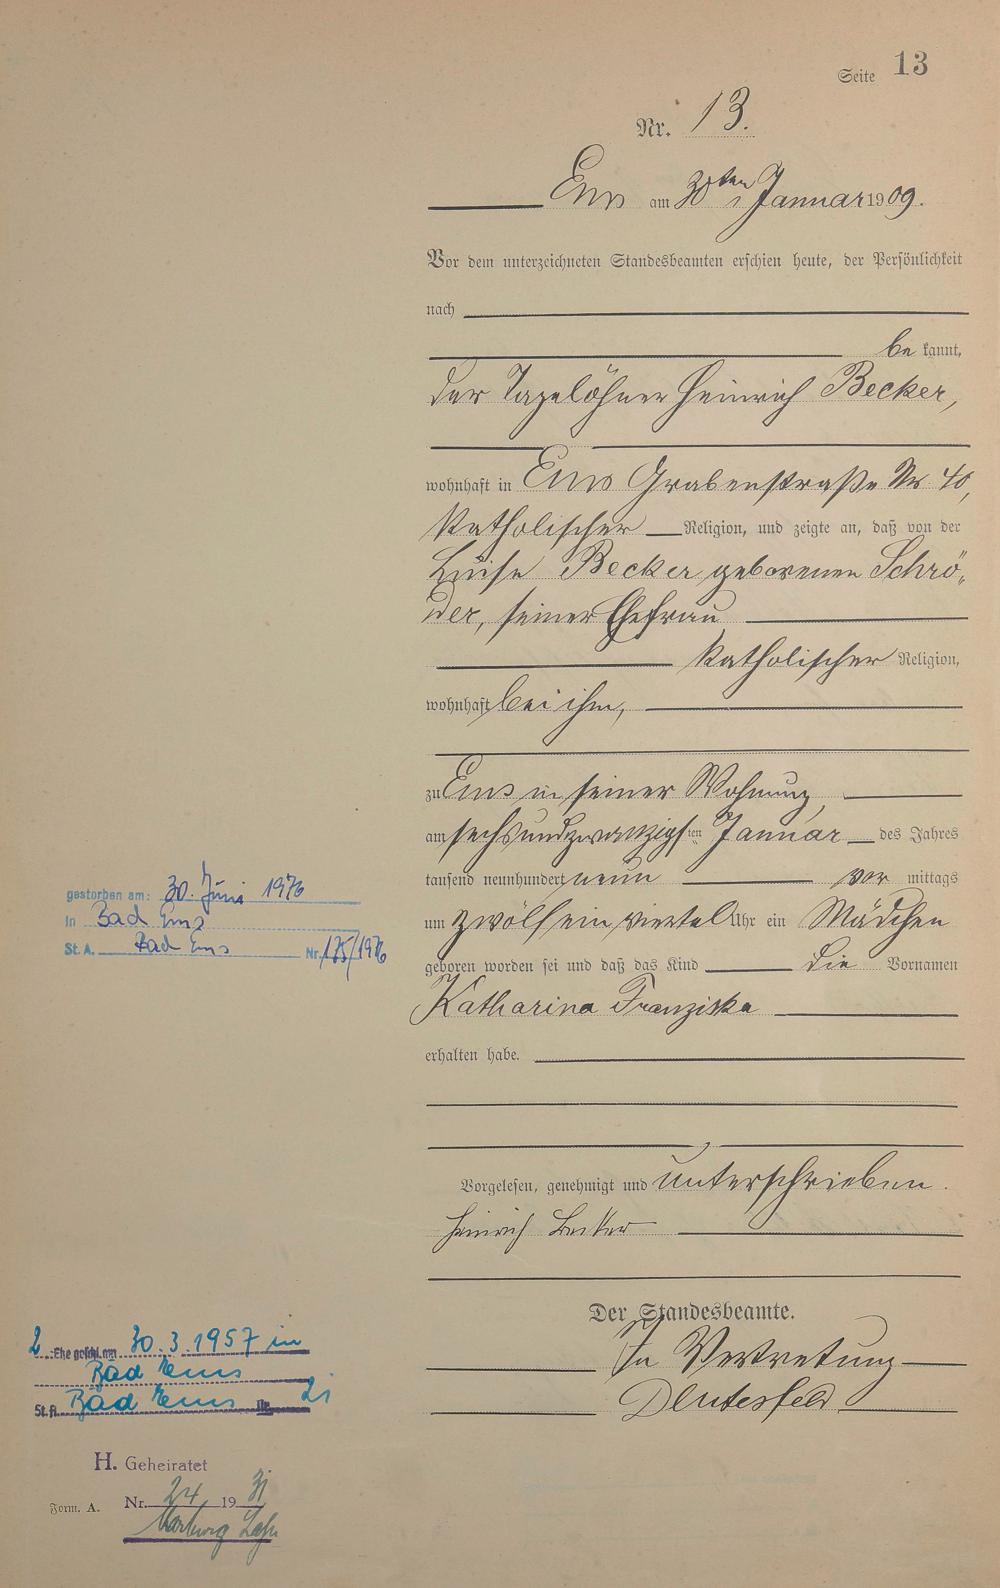 Seite 13
Nr. 13.
Ems am 30ten Januar 1909.
Vor dem unterzeichneten Standesbeamten erschien heute, der Persönlichkeit
nach
be kannt,
der Tagelöhner Heinrich Becker,
wohnhaft in Ems Grabenstraße Nr 40,
katholischer Religion, und zeigte an, daß von der
Luise Becker geborenen Schrö„
der, seiner Ehefrau
katholischer Religion,
wohnhaft bei ihm,
zu Ems in seiner Wohnung,
am sechsundzwanzigsten Januar des Jahres
tausend neunhundert neun vor mittags
um zwölf ein viertel Uhr ein Mädchen
geboren worden sei und daß das Kind die Vornamen
Katharina Franziska
erhalten habe.
Vorgelesen, genehmigt und unterschrieben.
Heinrich Becker
Der Standesbeamte.
In Vertretung
gestorben am: 30. Juni 1976
in Bad Ems
St. A. Bad Ems Nr. 175/1976
2. Ehe geschl. am 30.3.1957 in
Bad Ems
St. A. Bad Ems Nr. 21
H. Geheiratet
Nr. 24 1931
Form. A.